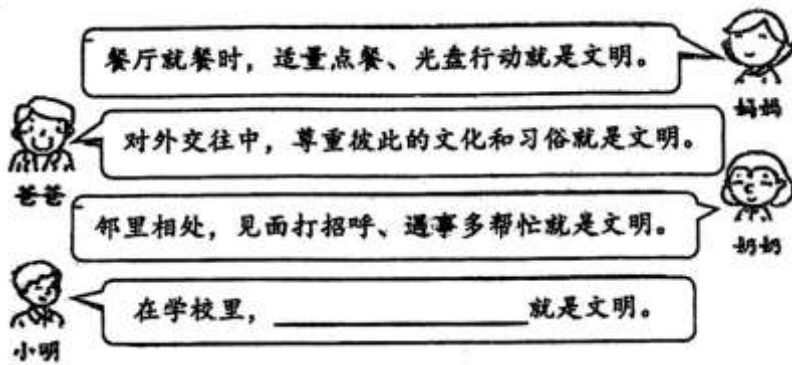 餐厅就餐时，适量点餐、光盘行动就是文明。
妈妈
对外交往中，尊重彼此的文化和习俗就是文明。
爸爸
邻里相处，见面打招呼、遇事多帮忙就是文明。
奶奶
在学校里，____________________就是文明。
小明